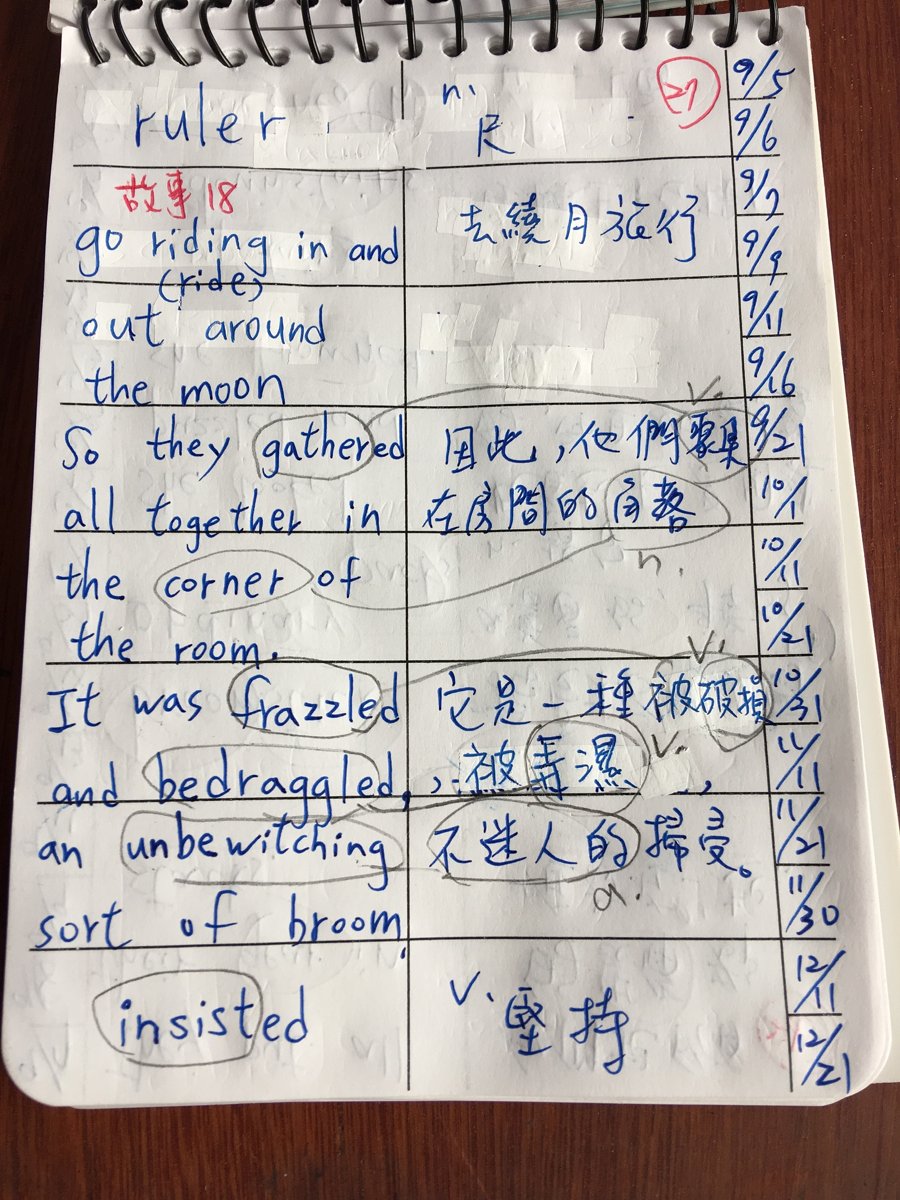 n. 27 9/5
ruler 尺 9/6
故事18 9/7
go riding in and 去繞月旅行 9/9
(ride)
out around 9/11
the moon 9/16
v.
So they gathered 因此,他們聚集 9/21
all together in 在房間的角落 10/1
n.
the corner of 10/11
the room. 10/21
v.
It was frazzled 它是一種被破損 10/31
and bedraggled, ,被弄濕 v. , 11/11
an unbewitching 不迷人的掃受。 11/21
a.
sort of broom. 11/30
insisted v. 堅持 12/11
12/21